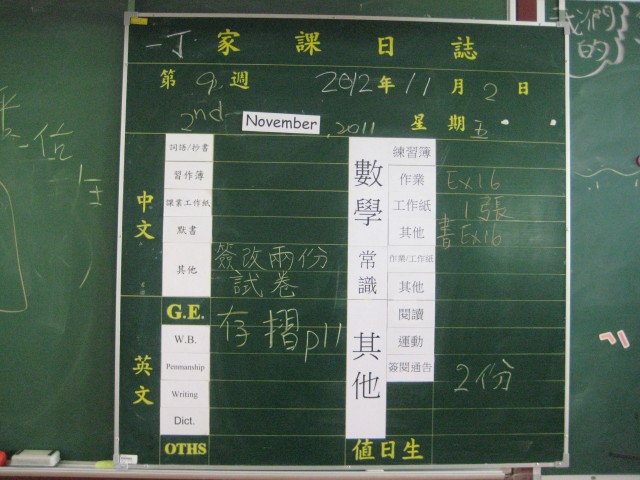 一丁 家課日誌
第 9 週 2012 年 11 月 2 日
2nd November , 2011 星期 五
中文
詞語/抄書
習作簿
課業工作紙
默書
其他 簽改兩份
試卷
G.E. 存摺p11
英文
W.B.
Penmanship
Writing
Dict.
OTHS
數學
練習簿
作業 Ex16
工作紙 1張
其他 書Ex16
常識
作業/工作紙
其他
其他
閱讀
運動
簽閱通告 2份
值日生
我們
的
位